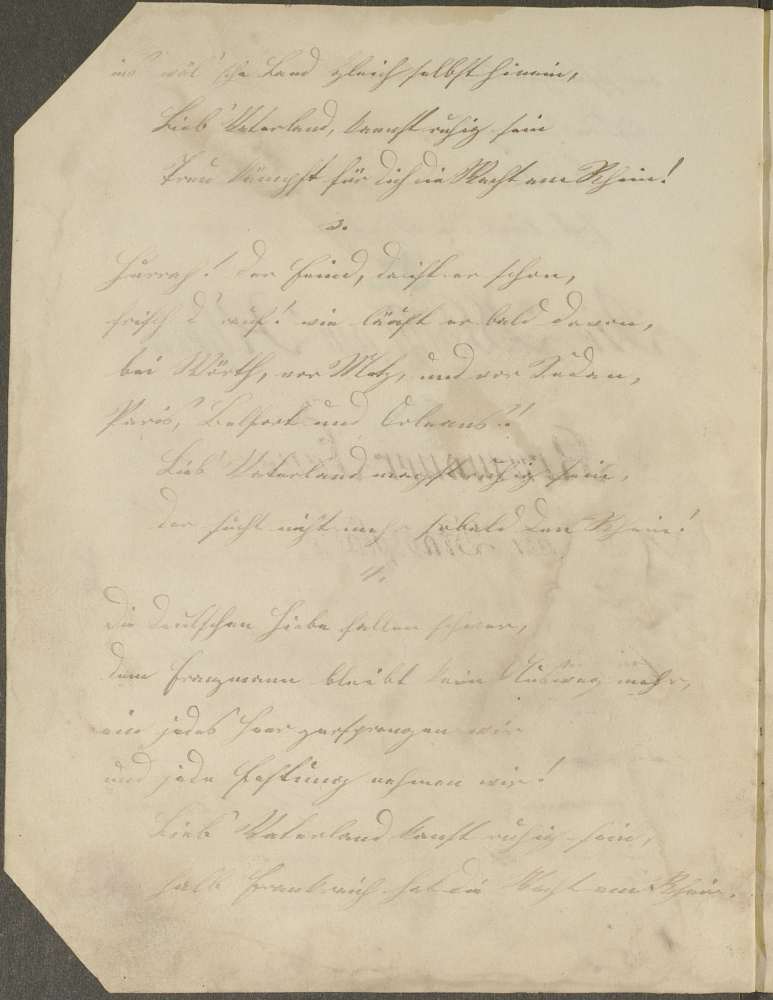 ins wäl'sche Land gleich selbst hinein,
Lieb' Vaterland, kannst ruhig sein
Treu kämpft für dich die Wacht am Rhein!
3.
Hurrah! der Feind, da ist er schon,
frisch d'rauf! wie läuft er bald davon,
bei Wörth, vor Metz, und vor Sedan,
Paris, Belfort und Orleans!
Lieb' Vaterland magst ruhig sein,
der sucht nicht mehr sobald den Rhein!
4.
Die deutschen Hiebe fallen schwer,
dem Franzmann bleibt kein Ausweg mehr,
ein jedes Heer zersprengen wir
und jede Festung nehmen wir!
Lieb' Vaterland kanst ruhig sein,
halb Frankreich hat die Wacht am Rhein.